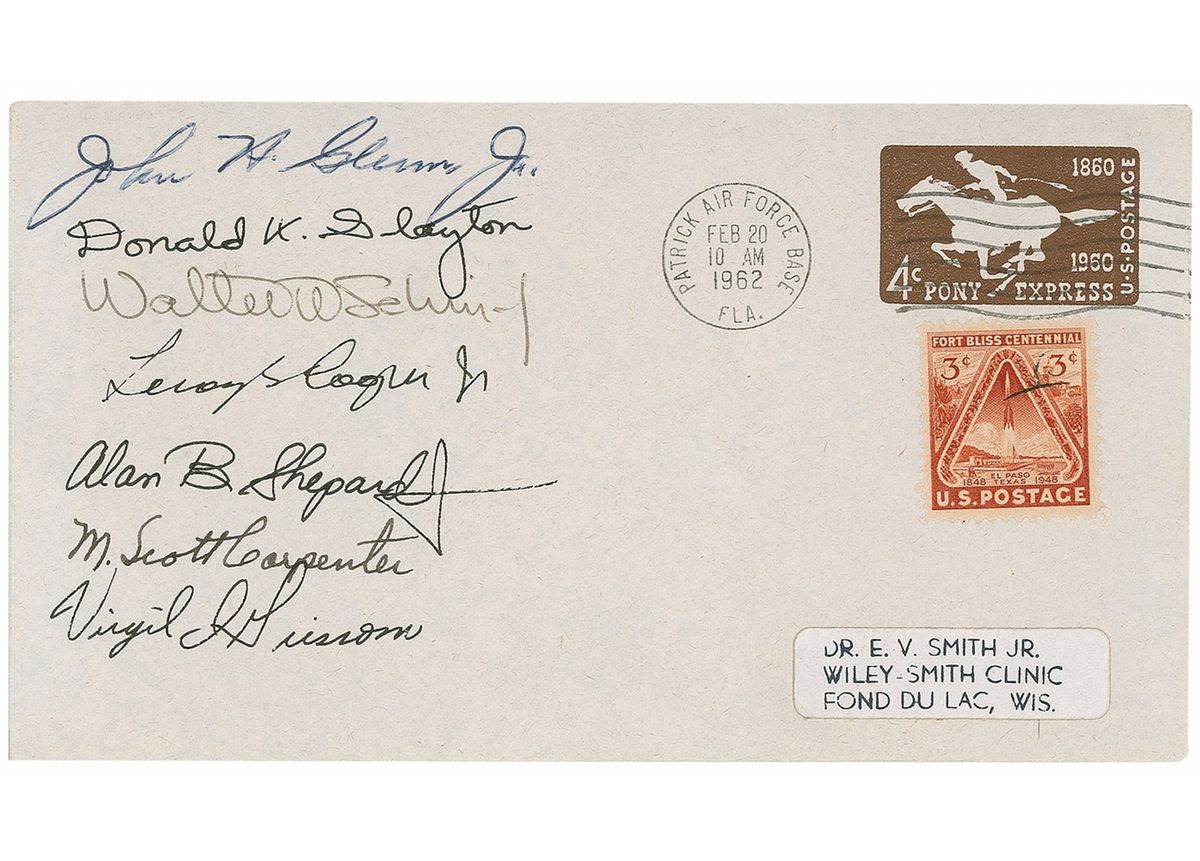 John H. Glenn, Jr.
Donald K. Slayton
Walter M Schirra Jr
Leroy G Cooper Jr
Alan B. Shepard Jr
M. Scott Carpenter
Virgil I Grissom
PATRICK AIR FORCE BASE
FEB 20
10 AM
1962
FLA.
1860
U.S. POSTAGE
1960
4c PONY EXPRESS
FORT BLISS CENTENNIAL
3¢ 3¢
EL PASO
1848 TEXAS 1948
U.S. POSTAGE
DR. E. V. SMITH JR.
WILEY-SMITH CLINIC
FOND DU LAC, WIS.